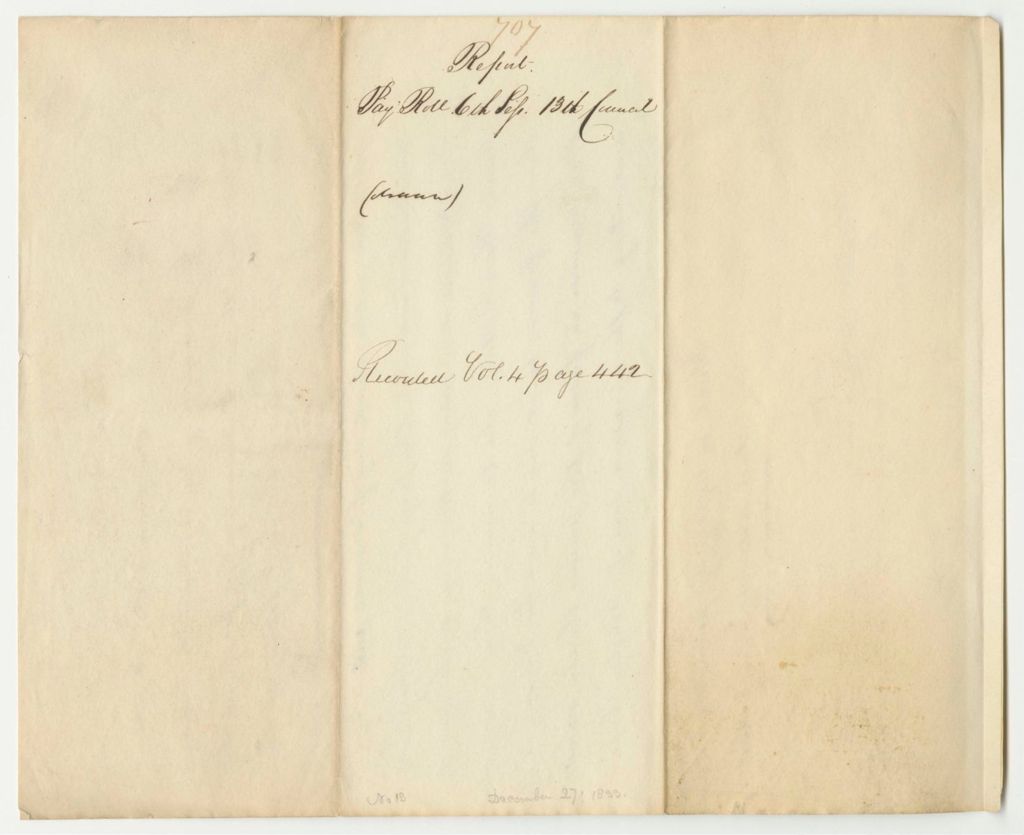 707
Report.
Pay Roll 6th Sess. 13th Council
Recorded Vol. 4 page 442
No 13 December 27, 1833.